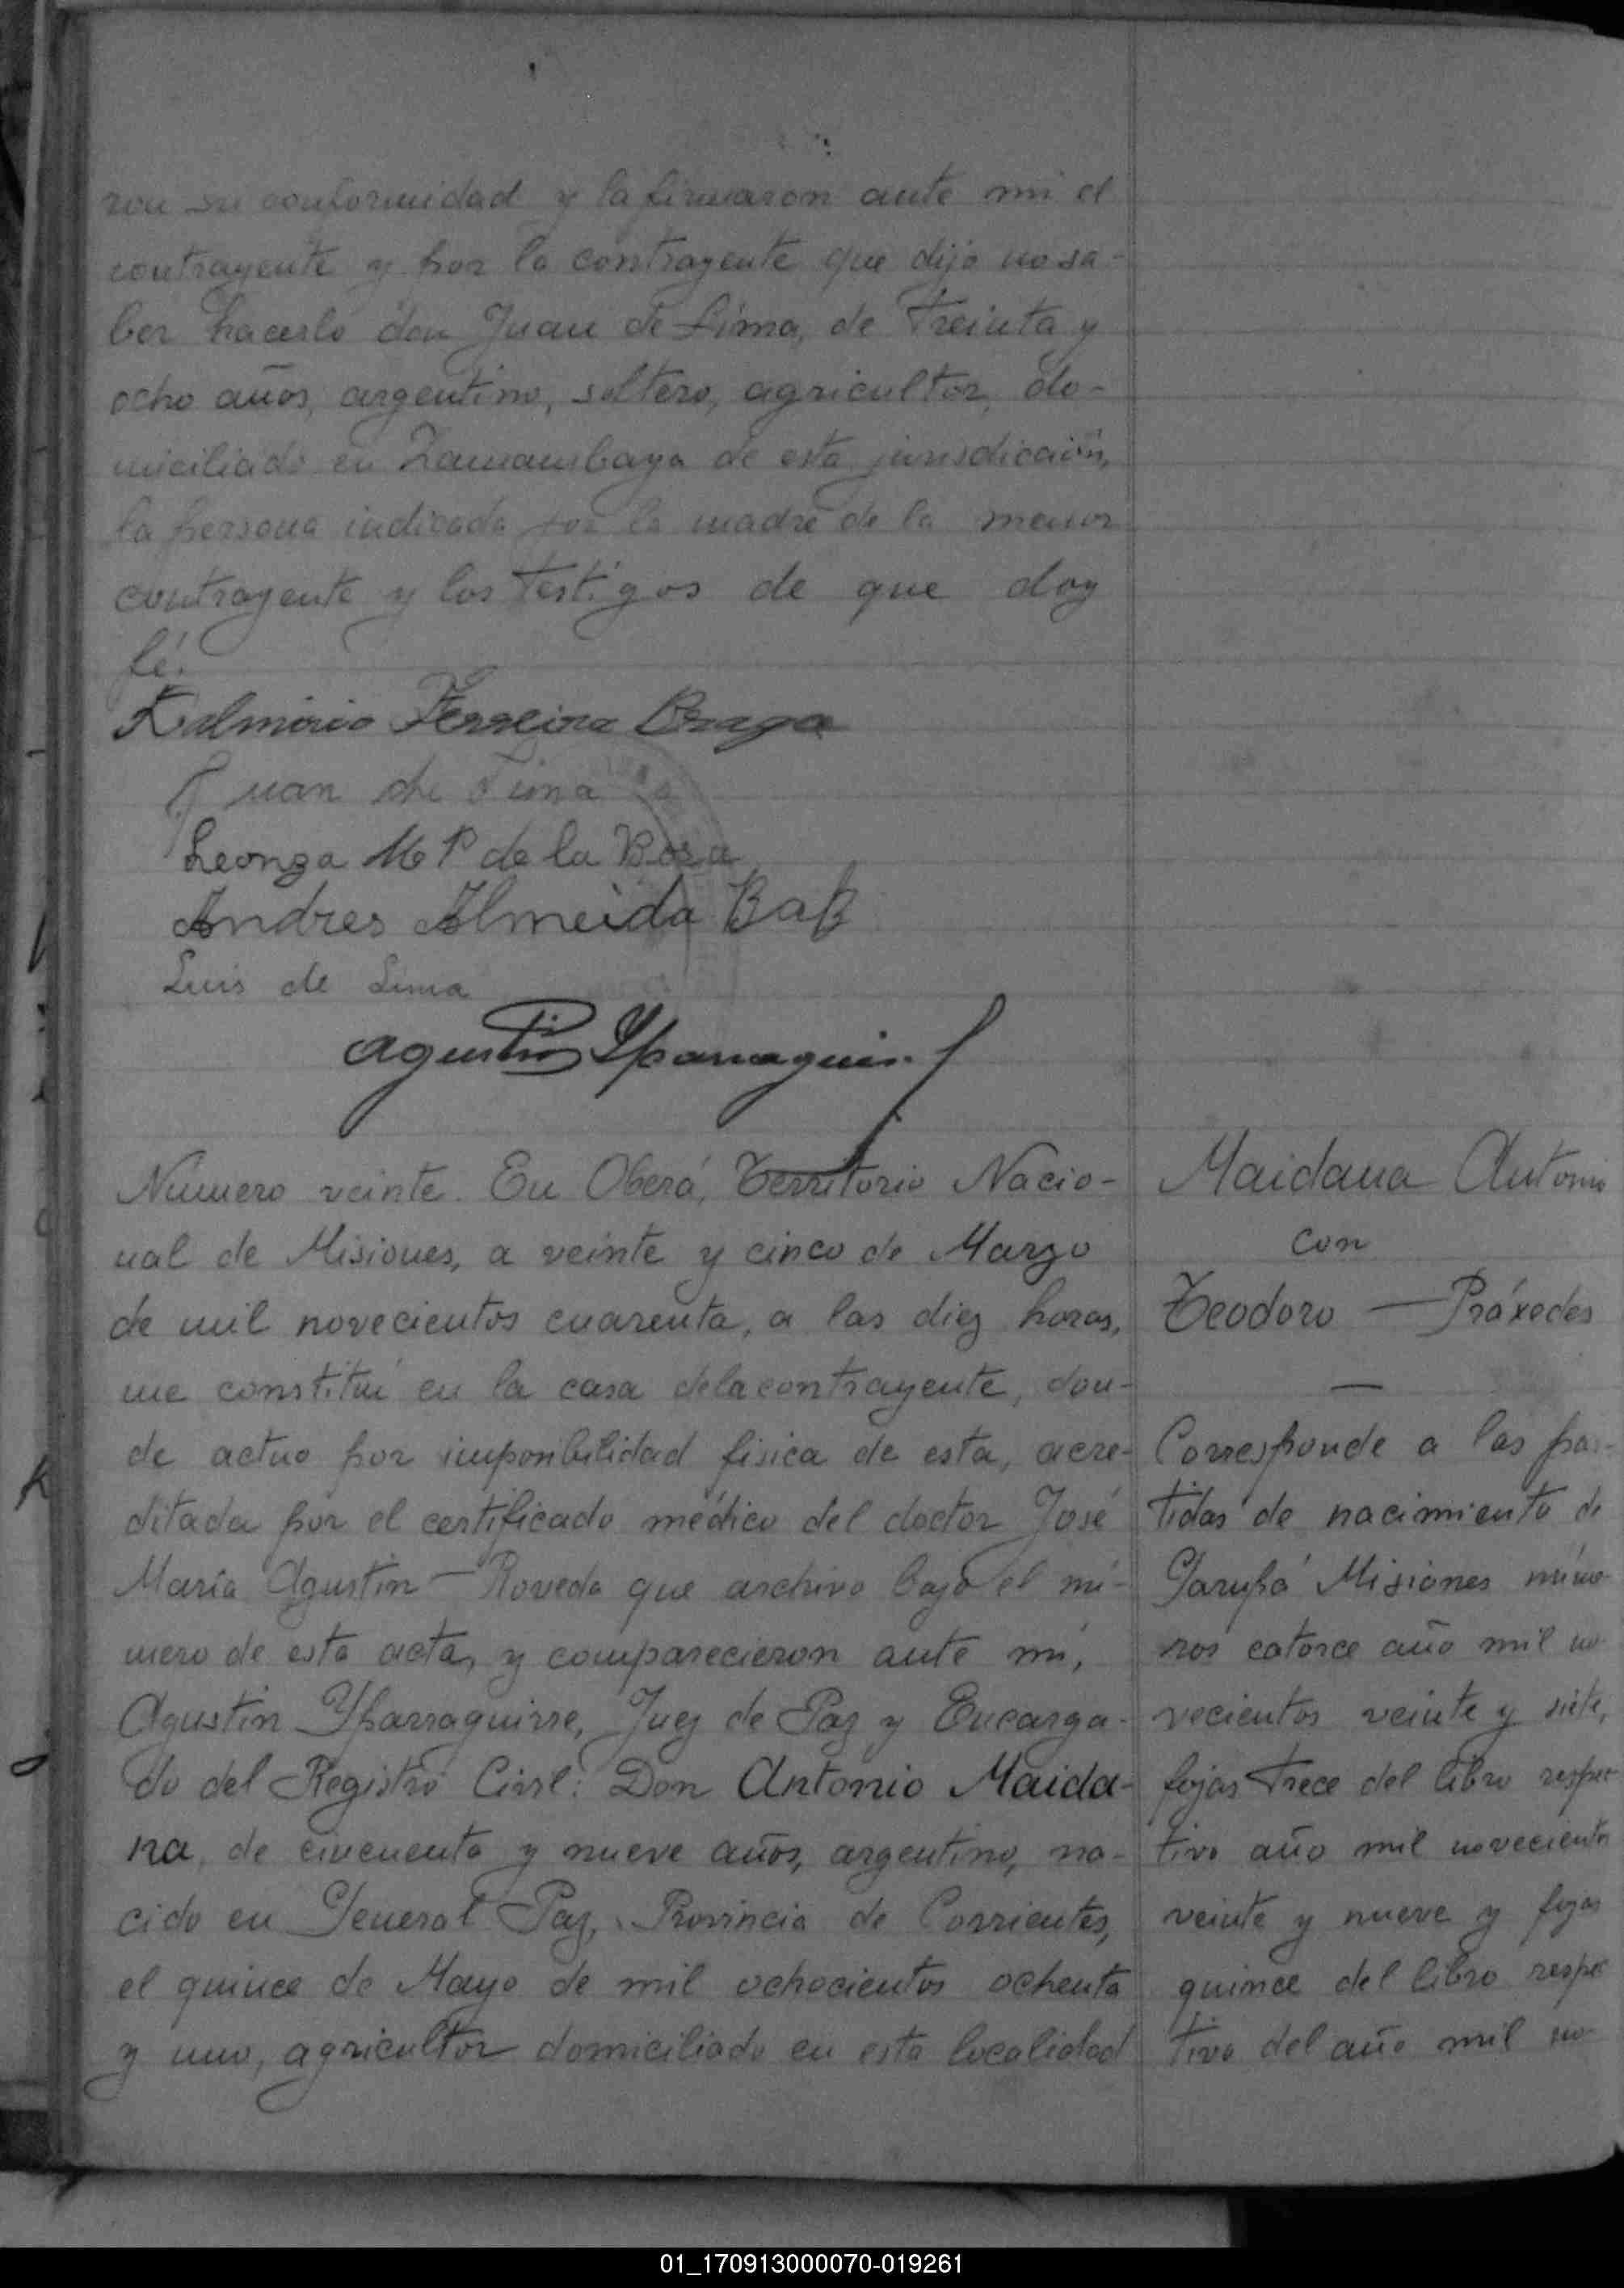 ron su conformidad y la firmaron ante mi el
contrayente y por la contrayente que dijo no sa-
ber hacerlo don Juan de Lima, de treinta y
ocho años, argentino, soltero, agricultor, do-
miciliado en de esta jurisdicción,
la persona indicada por la madre de la menor
contrayente y los testigos de que doy
fé.
Ferreira Braga
Juan de Lima
Leonza M P de la Rosa
Andres Almeida
Luis de Lima
Agustin Yparraguirre
Número veinte. En Oberá, Territorio Nacio-
nal de Misiones, a veinte y cinco de Marzo
de mil novecientos cuarenta, a las diez horas,
me constituí en la casa de la contrayente, don-
de actuo por imposibilidad fisica de esta, acre-
ditada por el certificado médico del doctor José
María Agustin Roveda que archivo bajo el nú-
mero de esta acta, y comparecieron ante mí,
Agustin Yparraguirre, Juez de Paz y Encarga-
do del Registro Civil: Don Antonio Maida-
na, de cincuenta y nueve años, argentino, na-
cido en General Paz, Provincia de Corrientes,
el quince de Mayo de mil ochocientos ochenta
y uno, agricultor domiciliado en esta localidad
Maidana Antonio
con
Teodoro — Práxedes
—
Corresponde a las par-
tidas de nacimiento de
Garupá Misiones núme-
ros catorce año mil no-
vecientos veinte y siete,
fojas trece del libro respec-
tivo año mil novecientos
veinte y nueve y fojas
quince del libro respec
tivo del año mil no-
01_170913000070-019261